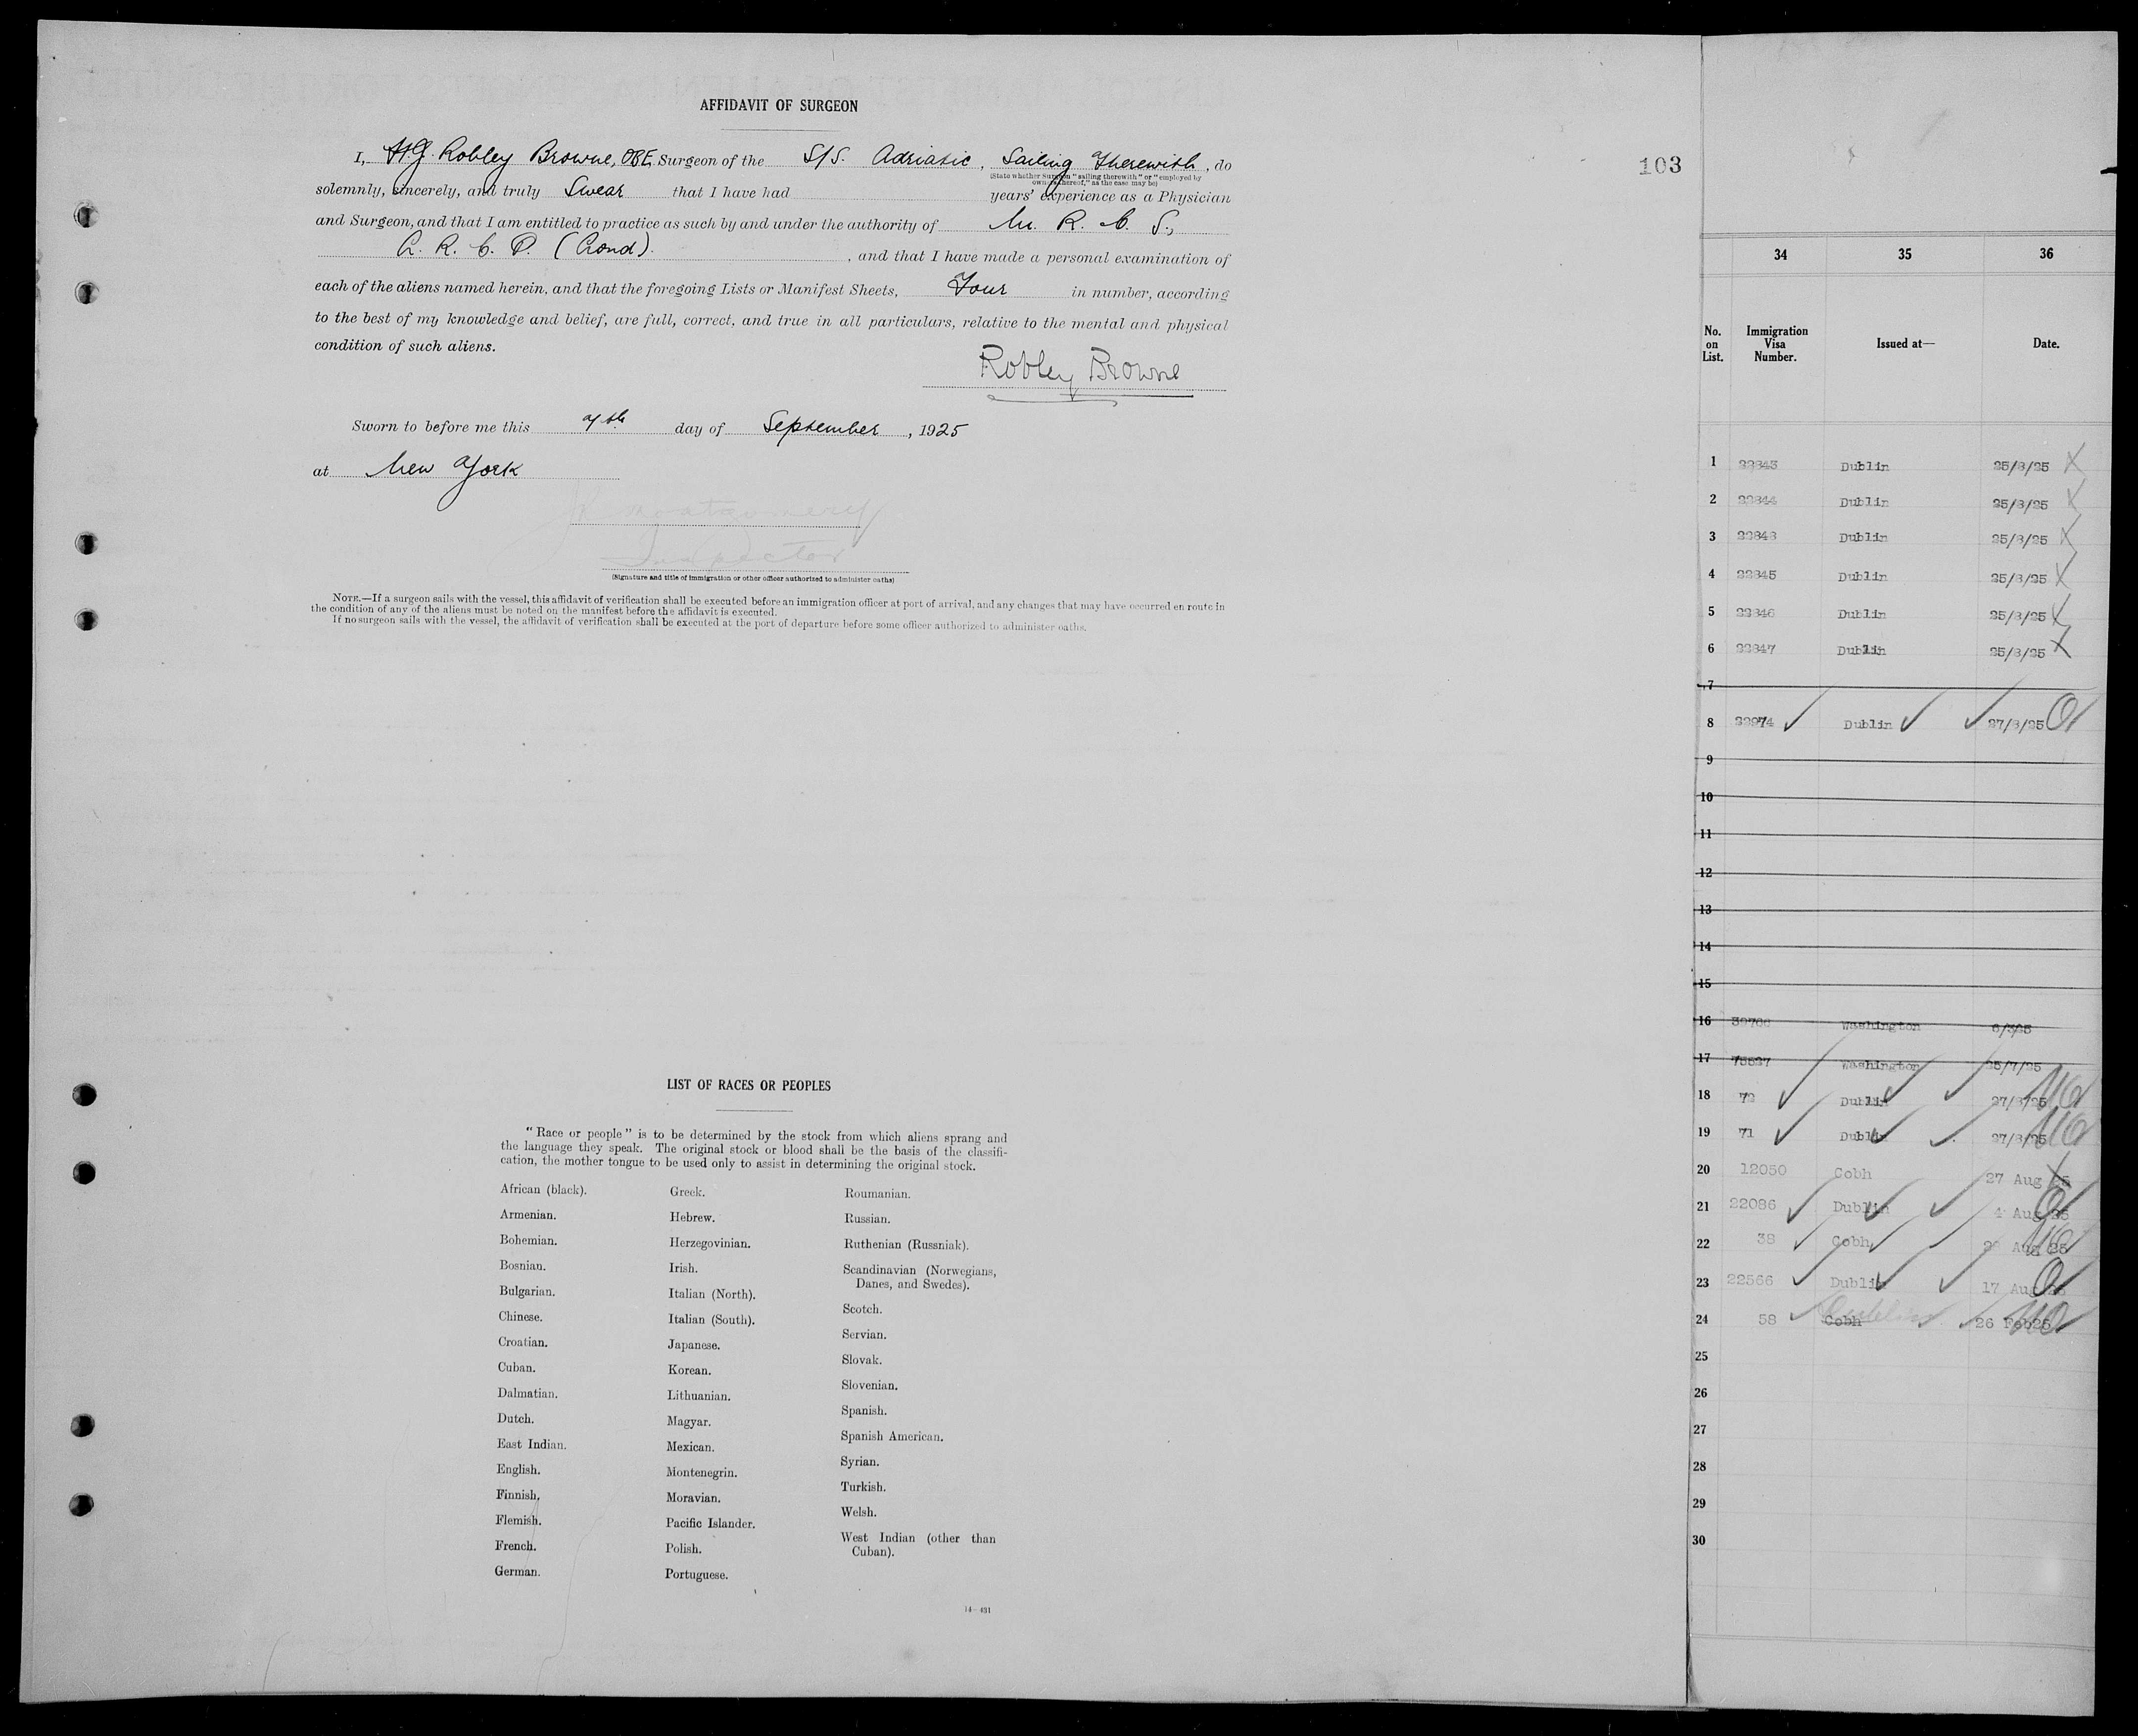 AFFIDAVIT OF SURGEON
I, H.G. Robley Browne, OBE, Surgeon of the S/S. Adriatic, Sailing Therewith, do
(State whether Surgeon "sailing therewith" or "employed by
owners thereof," as the case may be)
solemnly, sincerely, and truly Swear that I have had years' experience as a Physician
and Surgeon, and that I am entitled to practice as such by and under the authority of M. R. C. S.,
L. R. C. P. (Lond). , and that I have made a personal examination of
each of the aliens named herein, and that the foregoing Lists or Manifest Sheets, Four in number, according
to the best of my knowledge and belief, are full, correct, and true in all particulars, relative to the mental and physical
condition of such aliens.
Robley Browne
Sworn to before me this 7th day of September, 1925
at New York
Montgomery
Inspector
(Signature and title of immigration or other officer authorized to administer oaths)
NOTE.—If a surgeon sails with the vessel, this affidavit of verification shall be executed before an immigration officer at port of arrival, and any changes that may have occurred en route in
the condition of any of the aliens must be noted on the manifest before the affidavit is executed.
If no surgeon sails with the vessel, the affidavit of verification shall be executed at the port of departure before some officer authorized to administer oaths.
LIST OF RACES OR PEOPLES
"Race or people" is to be determined by the stock from which aliens sprang and
the language they speak. The original stock or blood shall be the basis of the classifi-
cation, the mother tongue to be used only to assist in determining the original stock.
African (black).
Armenian.
Bohemian.
Bosnian.
Bulgarian.
Chinese.
Croatian.
Cuban.
Dalmatian.
Dutch.
East Indian.
English.
Finnish.
Flemish.
French.
German.
Greek.
Hebrew.
Herzegovinian.
Irish.
Italian (North).
Italian (South).
Japanese.
Korean.
Lithuanian.
Magyar.
Mexican.
Montenegrin.
Moravian.
Pacific Islander.
Polish.
Portuguese.
Roumanian.
Russian.
Ruthenian (Russniak).
Scandinavian (Norwegians,
Danes, and Swedes).
Scotch.
Servian.
Slovak.
Slovenian.
Spanish.
Spanish American.
Syrian.
Turkish.
Welsh.
West Indian (other than
Cuban).
14—431
103
34 35 36
No. on List. Immigration Visa Number. Issued at— Date.
1 22843 Dublin 25/8/25
2 22844 Dublin 25/8/25
3 22848 Dublin 25/8/25
4 22845 Dublin 25/8/25
5 22846 Dublin 25/8/25
6 22847 Dublin 25/8/25
7
8 22974 Dublin 27/8/25
9
10
11
12
13
14
15
16 Washington
17 Washington 25/7/25
18 72 Dublin 27/8/25
19 71 Dublin 27/8/25
20 12050 Cobh 27 Aug 25
21 22086 Dublin 4 Aug 25
22 38 Cobh Aug 25
23 22566 Dublin 17 Aug
24 58 Cobh Dublin 26 Feb 25
25
26
27
28
29
30